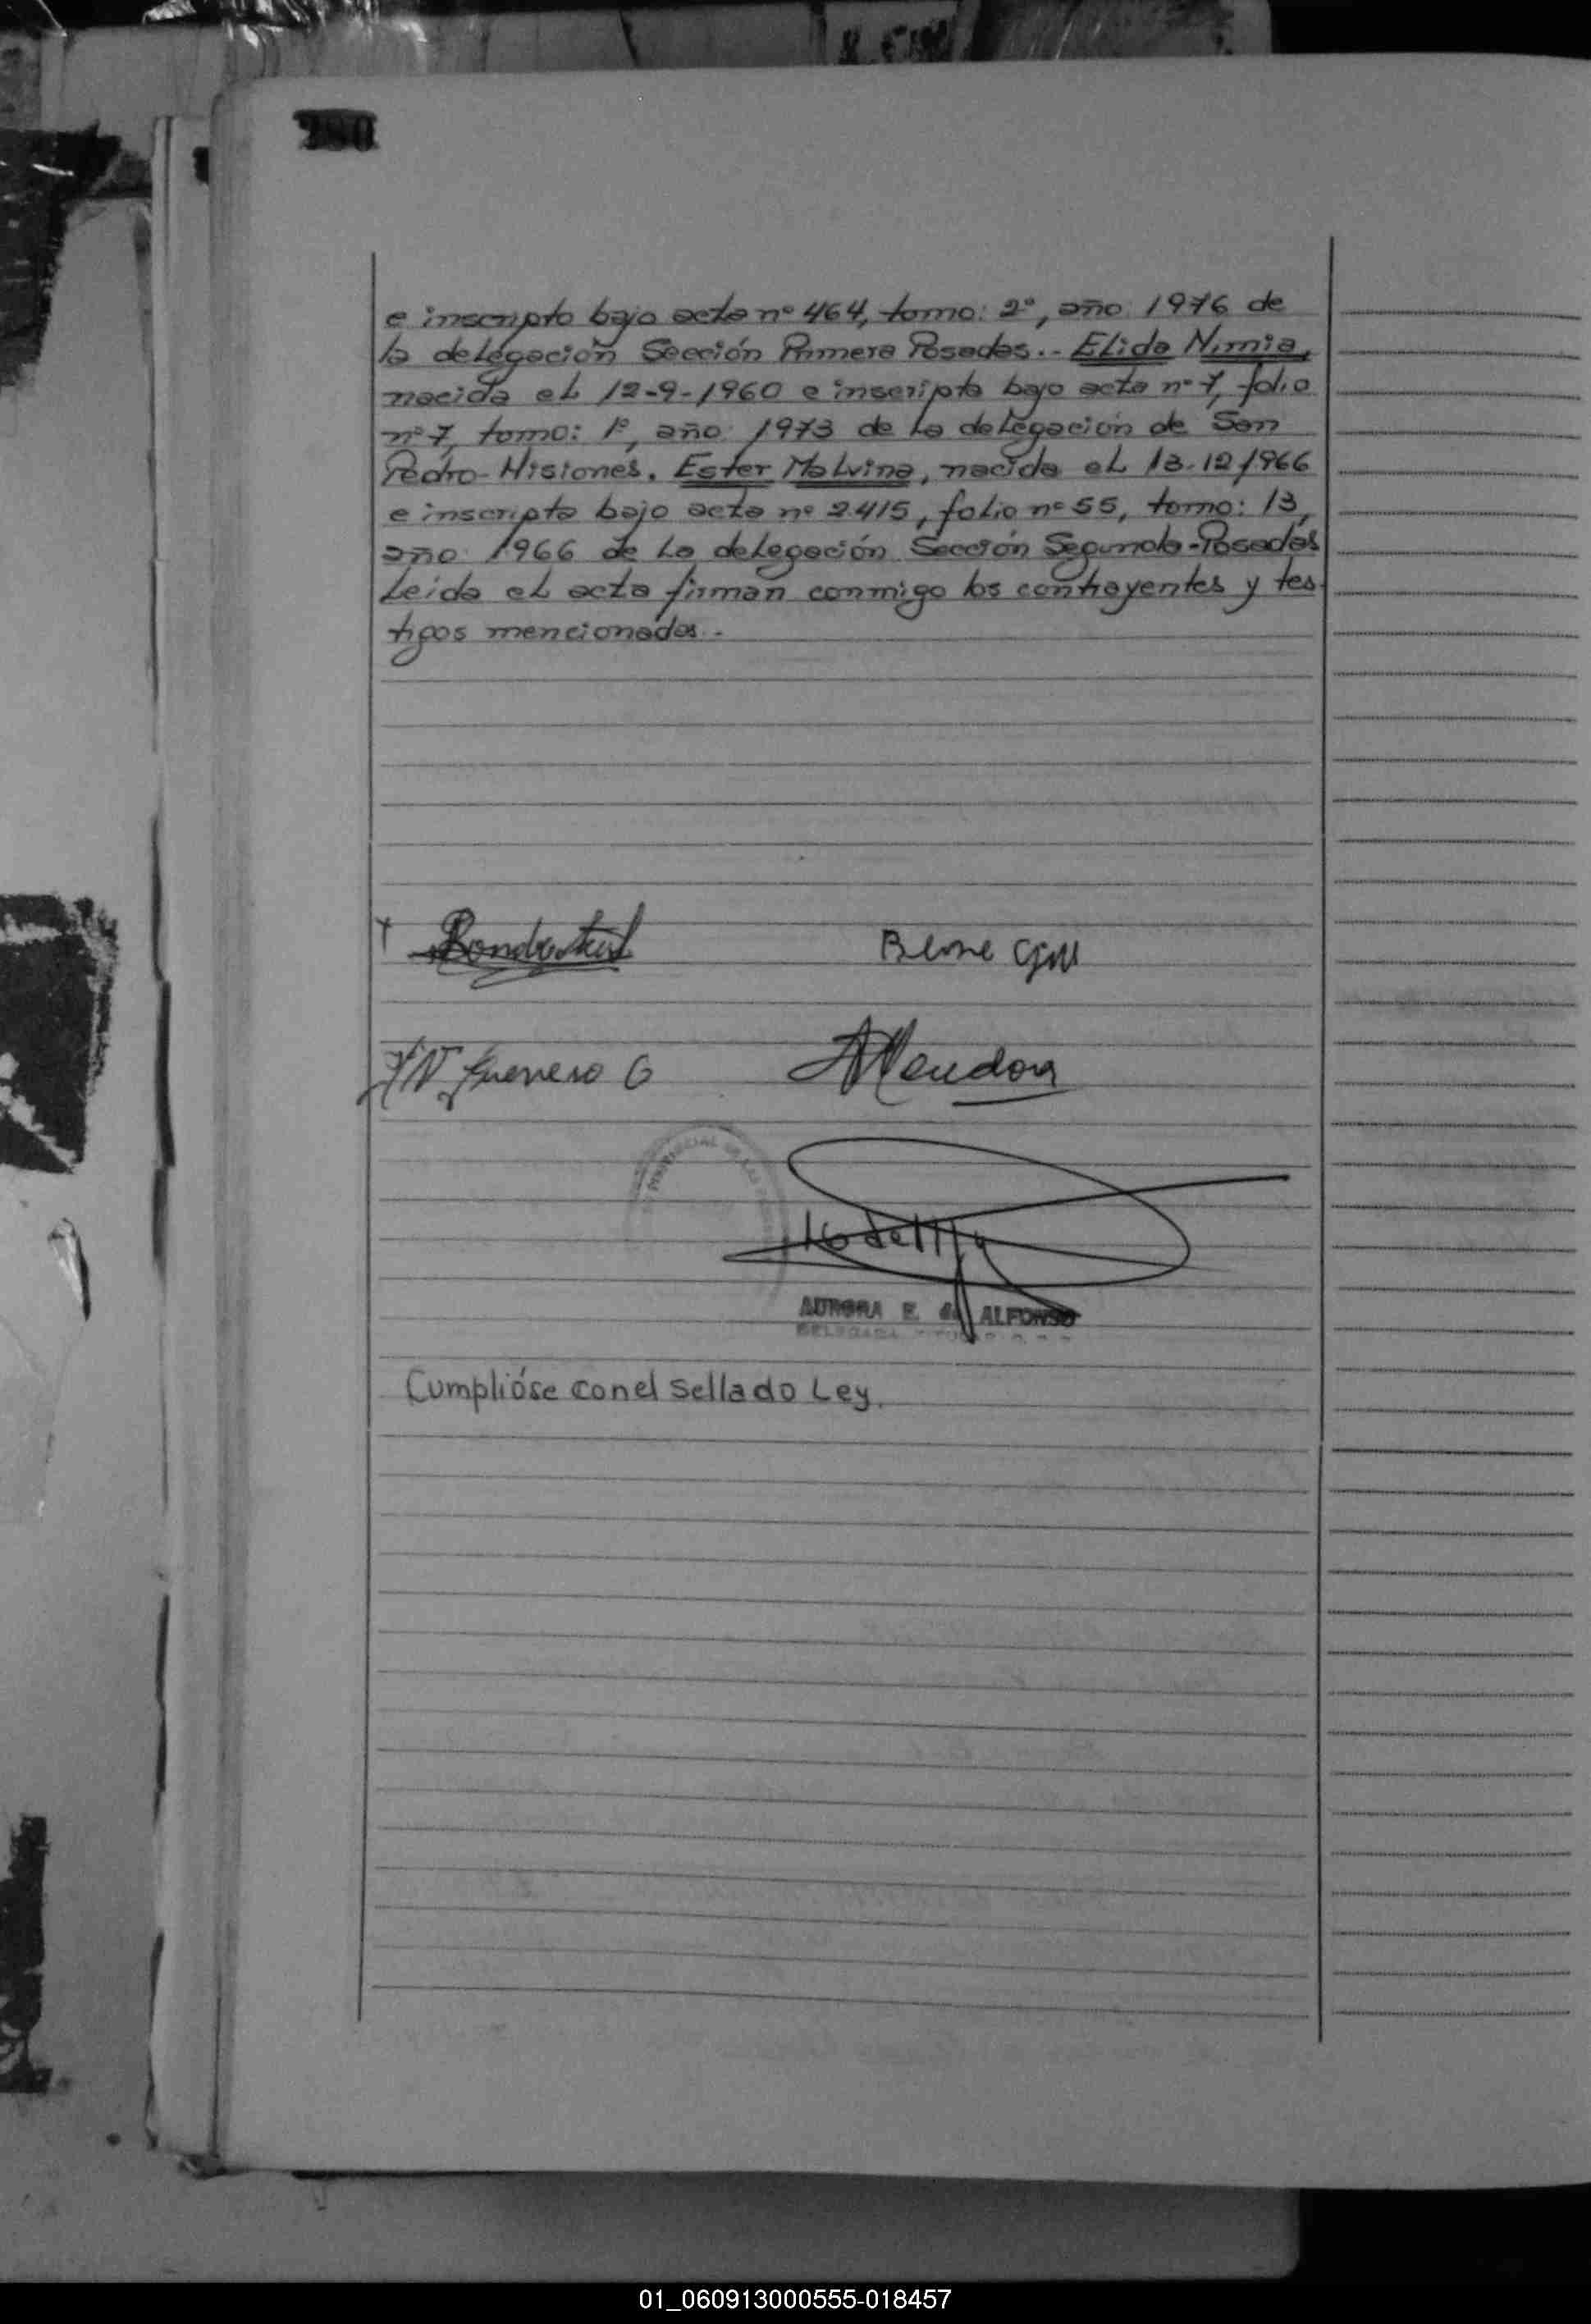 280
e inscripto bajo acta nº 464, tomo: 2º, año: 1976 de
la delegación Sección Primera Posadas.- Elida Nimia,
nacida el 12-9-1960 e inscripta bajo acta nº 7, folio
nº 7, tomo: 1º, año: 1973 de la delegación de San
Pedro-Misiones. Ester Malvina, nacida el 13.12.1966
e inscripta bajo acta nº 2415, folio nº 55, tomo: 13,
año: 1966 de la delegación Sección Segunda-Posadas
Leída el acta firman conmigo los contrayentes y tes
tigos mencionados.-
Mendoza
PROVINCIAL DE LAS
AURORA E. de ALFONSO
DELEGADA TITULAR
Cumplióse con el Sellado Ley.
01_060913000555-018457